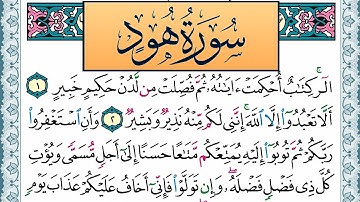 سُورَةُ هُودٍ
الٓر كِتَٰبٌ أُحْكِمَتْ ءَايَٰتُهُۥ ثُمَّ فُصِّلَتْ مِن لَّدُنْ حَكِيمٍ خَبِيرٍ ١
أَلَّا تَعْبُدُوٓا۟ إِلَّا ٱللَّهَ إِنَّنِى لَكُم مِّنْهُ نَذِيرٌ وَبَشِيرٌ ٢ وَأَنِ ٱسْتَغْفِرُوا۟
رَبَّكُمْ ثُمَّ تُوبُوٓا۟ إِلَيْهِ يُمَتِّعْكُم مَّتَٰعًا حَسَنًا إِلَىٰٓ أَجَلٍ مُّسَمًّى وَيُؤْتِ
كُلَّ ذِى فَضْلٍ فَضْلَهُۥ وَإِن تَوَلَّوْا۟ فَإِنِّىٓ أَخَافُ عَلَيْكُمْ عَذَابَ يَوْمٍ